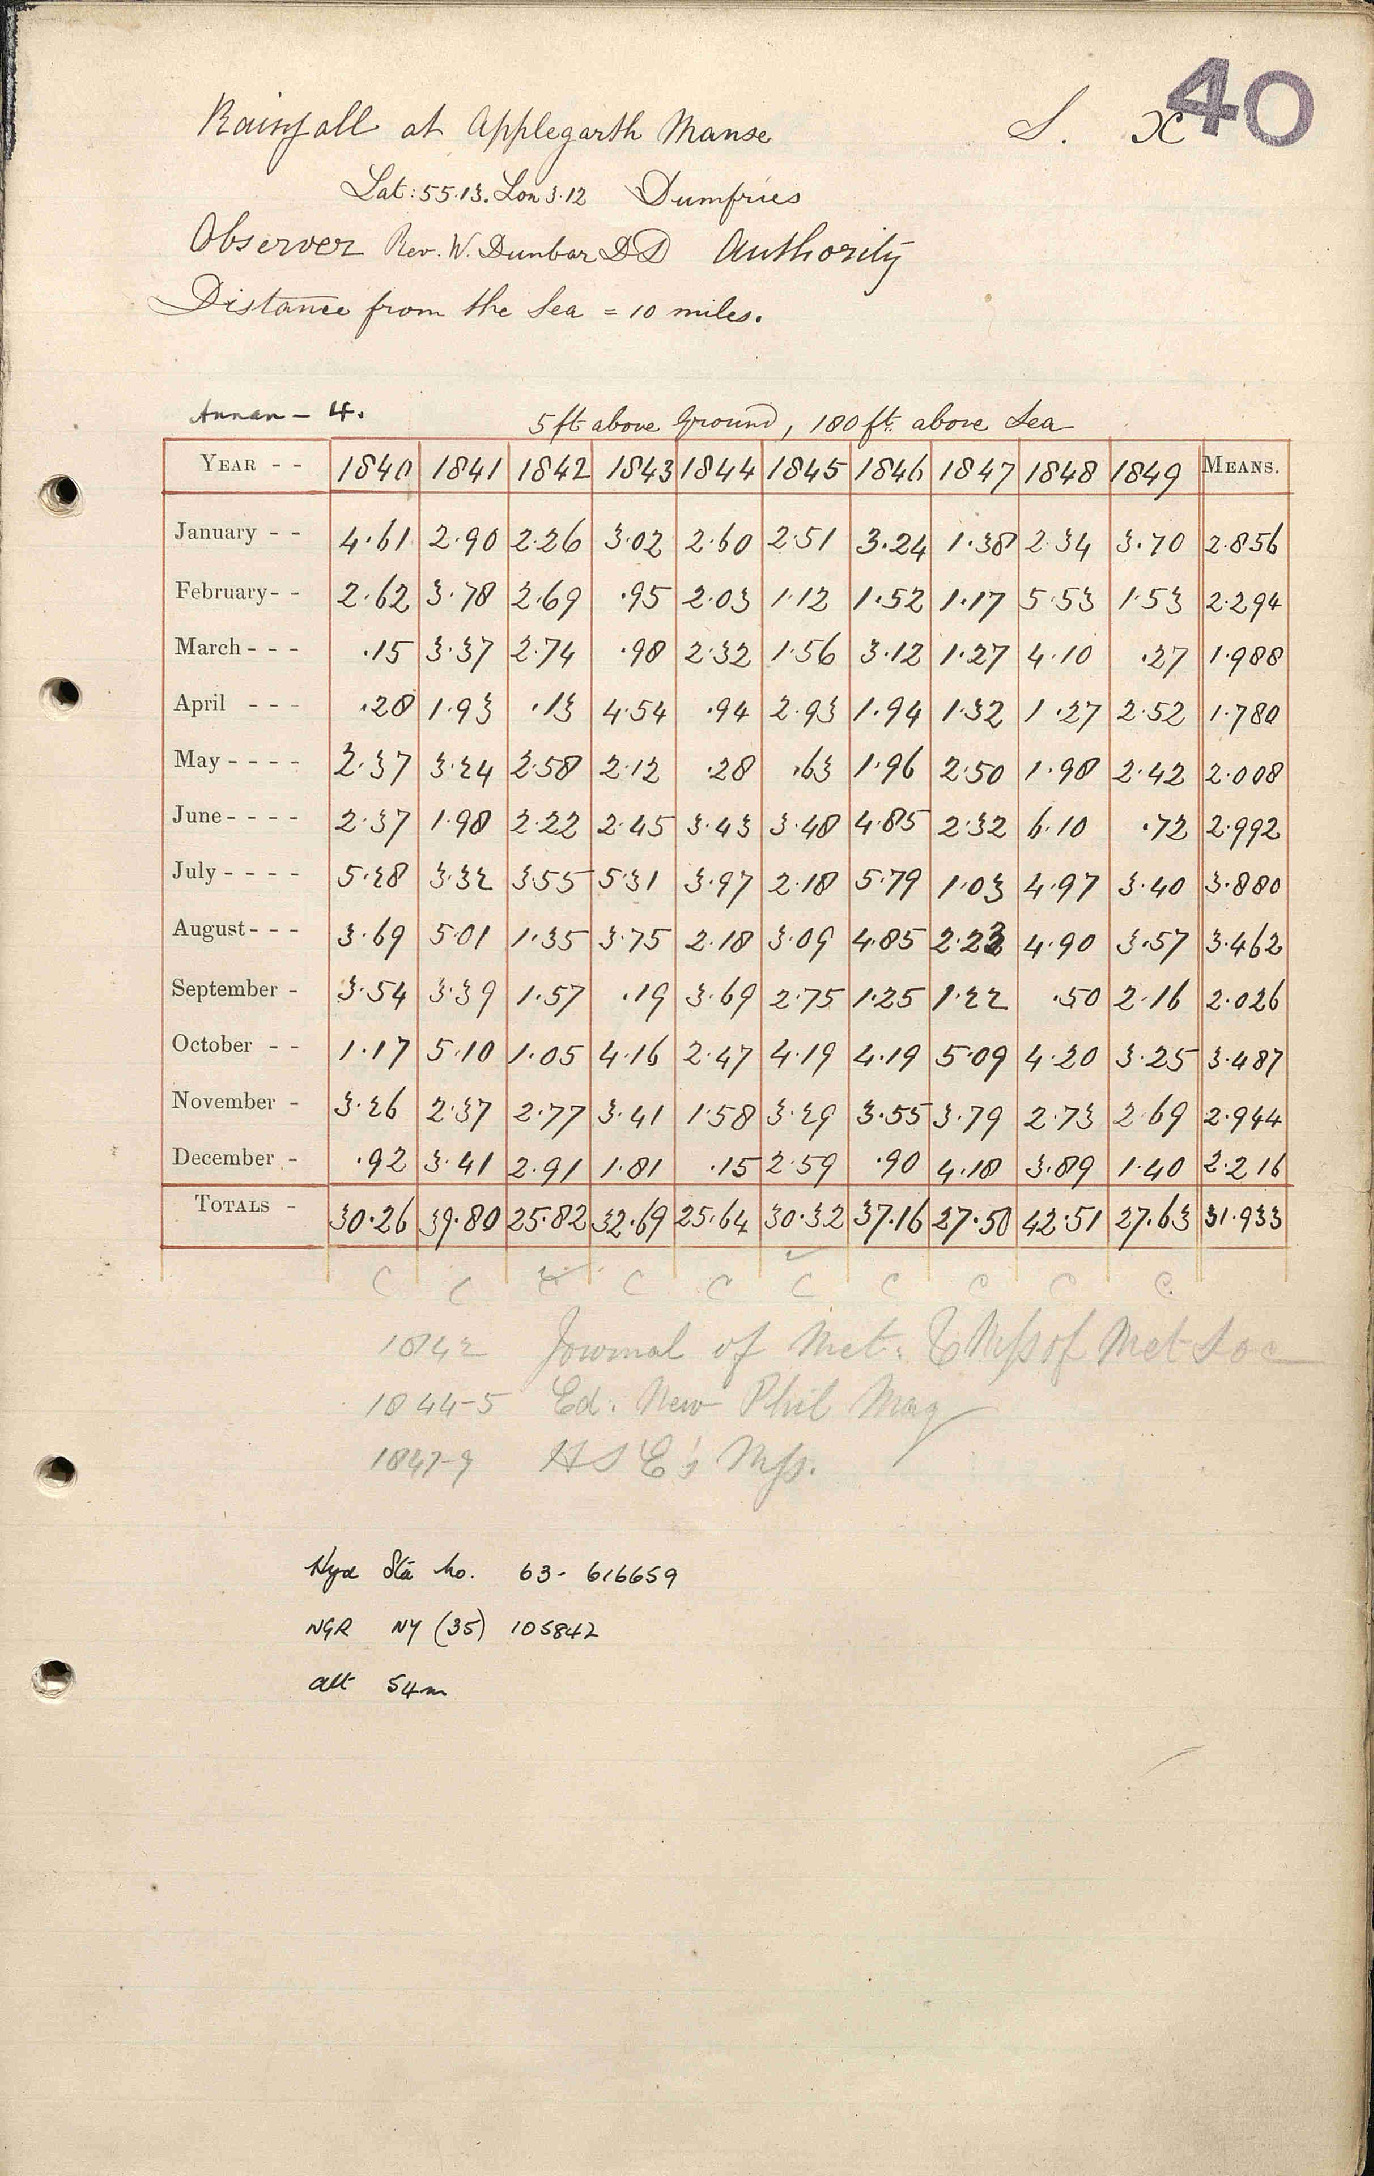 40
Rainfall at Applegarth Manse S. x
Lat: 55.13. Lon 3.12 Dumfries
Observer Rev. W. Dunbar DD Authority
Distance from the Sea = 10 miles.
Annan - 4.
5 ft above Ground, 180 ft above Sea
YEAR - - 1840 1841 1842 1843 1844 1845 1846 1847 1848 1849 MEANS.
January - - 4.61 2.90 2.26 3.02 2.60 2.51 3.24 1.38 2.34 3.70 2.856
February - - 2.62 3.78 2.69 .95 2.03 1.12 1.52 1.17 5.53 1.53 2.294
March - - - .15 3.37 2.74 .98 2.32 1.56 3.12 1.27 4.10 .27 1.988
April - - - .28 1.93 .13 4.54 .94 2.93 1.94 1.32 1.27 2.52 1.780
May - - - - 2.37 3.24 2.58 2.12 .28 .63 1.96 2.50 1.98 2.42 2.008
June - - - - 2.37 1.98 2.22 2.45 3.43 3.48 4.85 2.32 6.10 .72 2.992
July - - - - 5.28 3.32 3.55 5.31 3.97 2.18 5.79 1.03 4.97 3.40 3.880
August - - - 3.69 5.01 1.35 3.75 2.18 3.09 4.85 2.23 4.90 3.57 3.462
September - 3.54 3.39 1.57 .19 3.69 2.75 1.25 1.22 .50 2.16 2.026
October - - 1.17 5.10 1.05 4.16 2.47 4.19 4.19 5.09 4.20 3.25 3.487
November - 3.26 2.37 2.77 3.41 1.58 3.29 3.55 3.79 2.73 2.69 2.944
December - .92 3.41 2.91 1.81 .15 2.59 .90 4.18 3.89 1.40 2.216
TOTALS - 30.26 39.80 25.82 32.69 25.64 30.32 37.16 27.50 42.51 27.63 31.933
C C C C C C C C C C
1842 Journal of Met: & Mss of Met Soc
1844-5 Ed. New Phil Mag
1847-9 H S E's Mss.
Hyd Sta No. 63- 616659
NGR NY (35) 105842
alt 54m